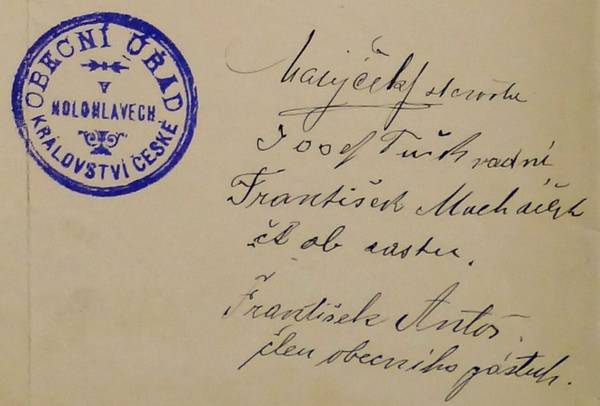 OBECNÍ ÚŘAD
V
HOLOHLAVECH
KRÁLOVSTVÍ ČESKÉ
starosta
Josef radní
František Macháček
čl ob zastu.
František Antoš.
člen obecního zástup.